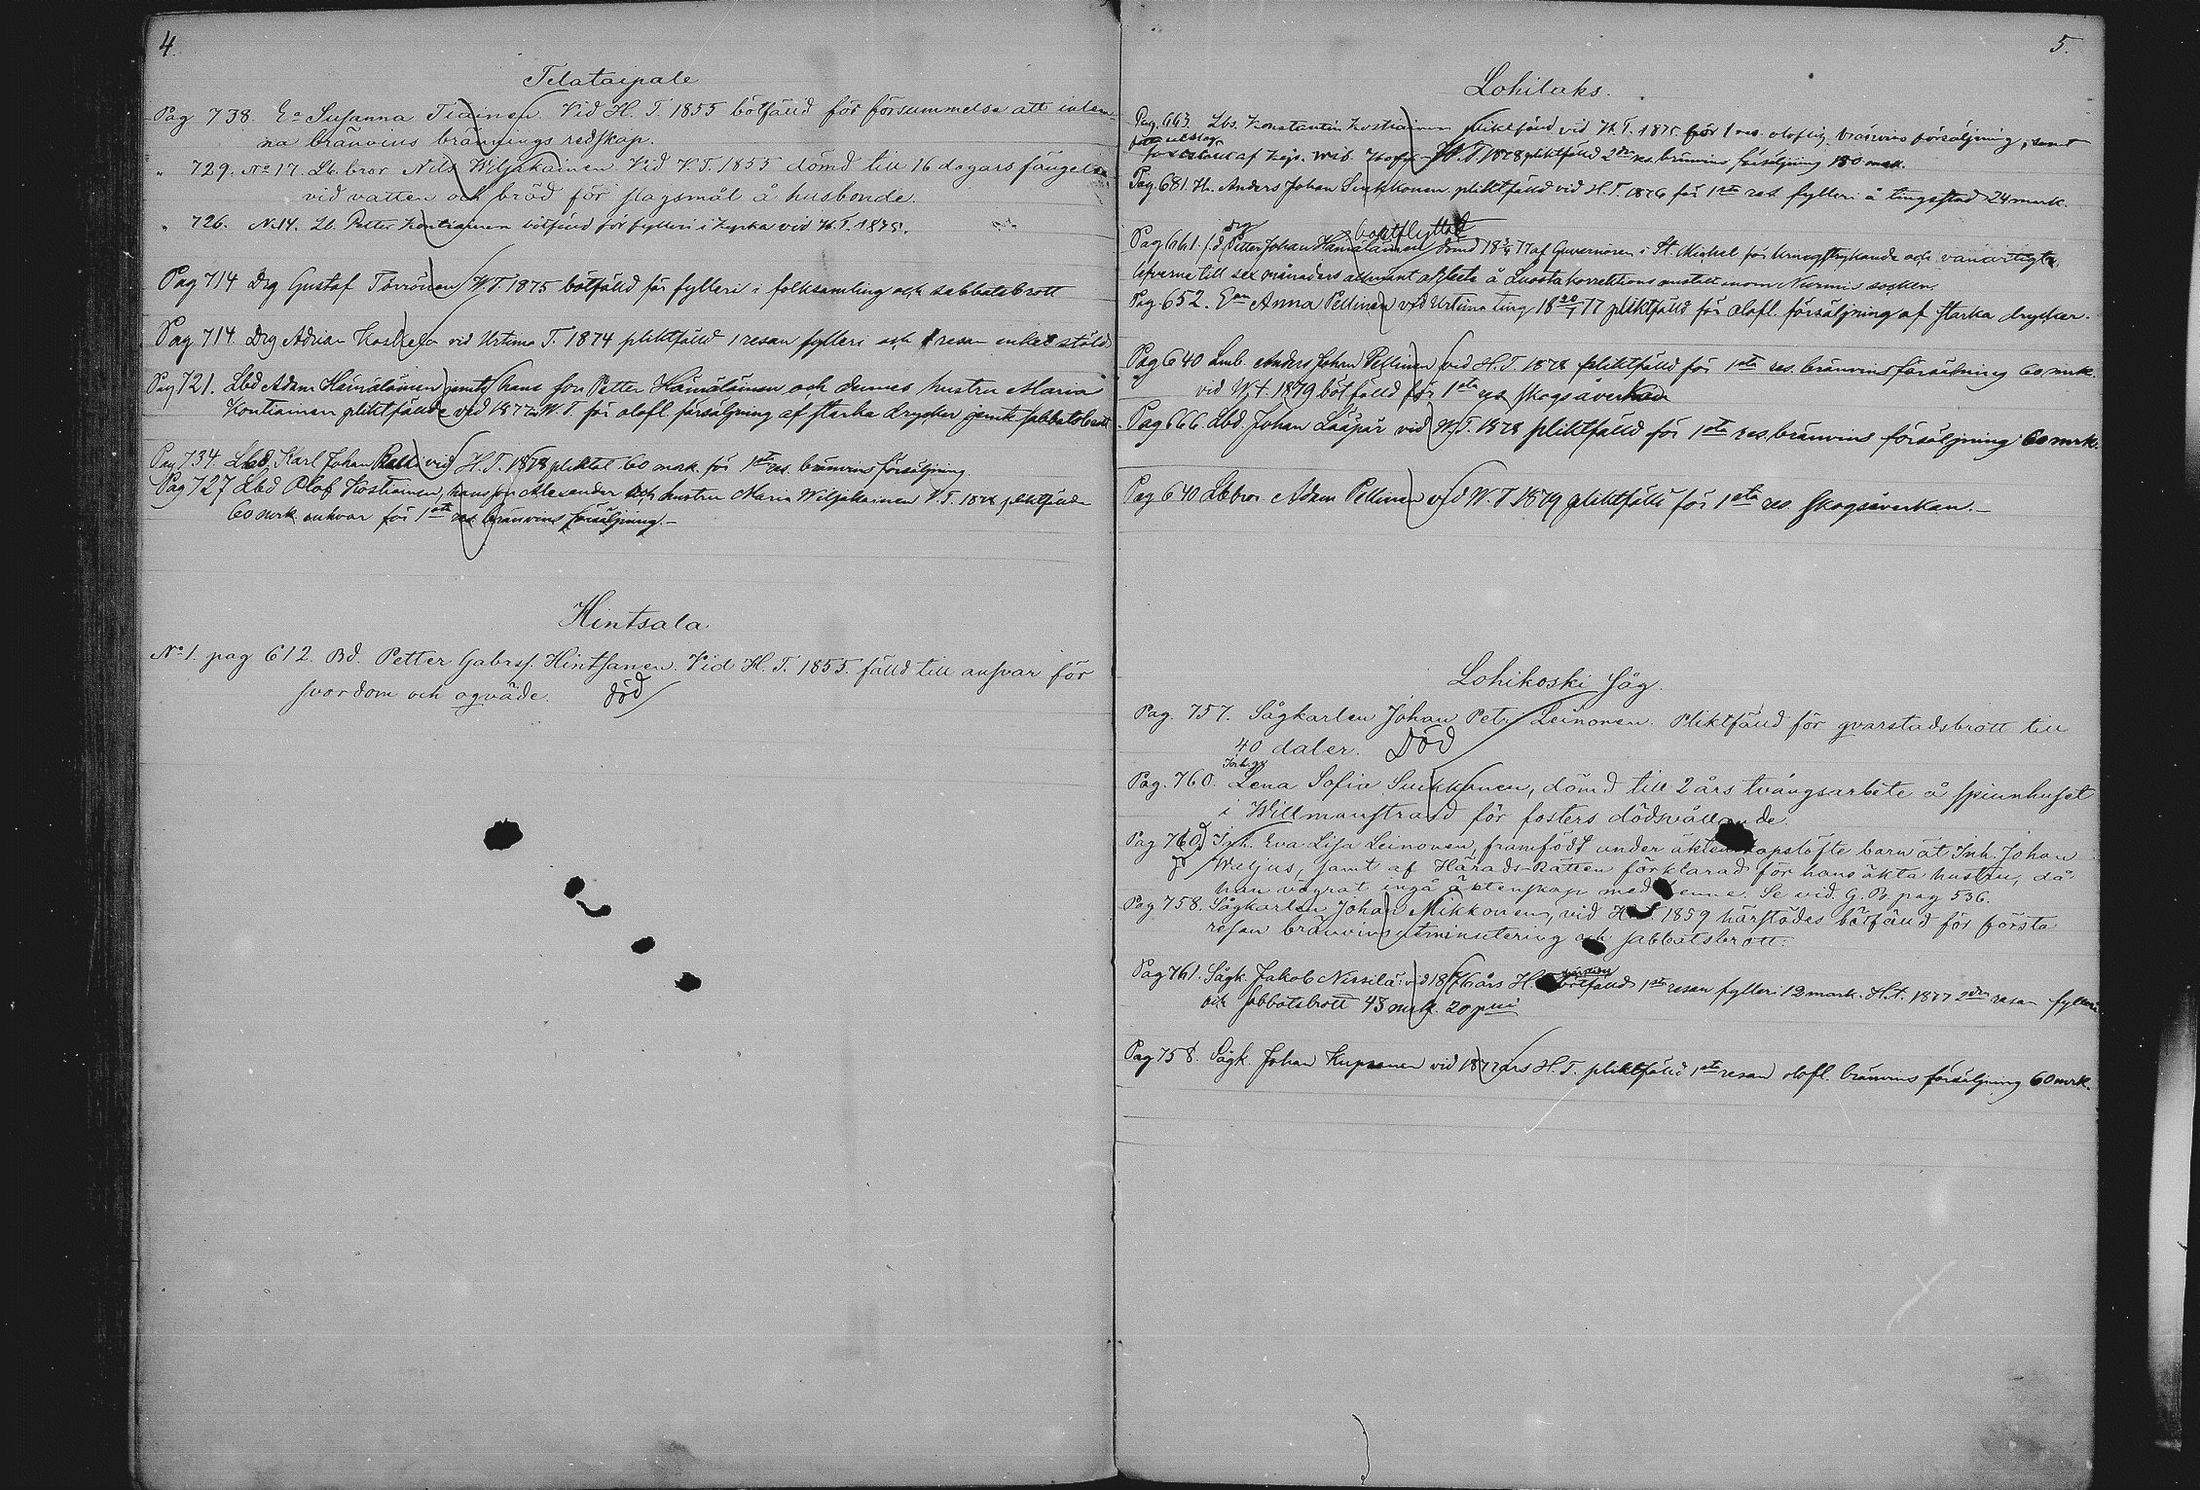 4.
Telataipale
Pag 738. Ea Susanna Tiainen. Vid H. T. 1855 bötfälld för försummelse att inlem-
na bränvins brännings redskap.
" 729. No 17. Lb. bror Nils Wiljakainen. Vid V. T. 1855 dömd till 16 dagars fängelse
vid vatten och bröd för slagsmål å husbonde.
" 726. No 14. Lb. Petter Kontiainen bötfälld för fylleri i kyrka vid H. T. 1875.
Pag 714 Drg Gustaf Törrönen H T 1875 bötfälld för fylleri i folksamling och sabbatsbrott
Pag 714. Drg Adrian Koskela vid Urtima T. 1874 pliktfälld 1 resan fylleri och 1 resan enkel stöld
Pag 721. Lbd Adam Hämäläinen jemte hans son Petter Hämäläinen och dennes hustru Maria
Kontiainen pliktfällde vid W T. för olofl. försäljning af starka drycker jemte sabbatsbrott
Pag 734. Lbd. Karl Johan vid H. T. 1878 60 mrk. för 1sta res. bränvins försäljning.
Pag 727 Lbd Olof Kostiainen, hans son Alexander och hustru Maria Wiljakainen V. T. 1878 pliktfälda
60 mrk. enhvar för 1sta res. bränvins försäljning.
Hintsala
No 1. pag 612. Bd. Petter Gabrsf. Hintsanen. Vid H. T. 1855. fälld till ansvar för
svordom och oqväde. död
5.
Lohilaks.
Pag. 663. Lbs. Konstantin Kostiainen pliktfälld vid H. T. 1875 för 1 res. oloflig bränvins försäljning, samt
af H. T. 1878 pliktfälld 2dra res. bränvins försäljning mrk.
Pag. 681. H. Anders Johan Sinkkonen pliktfälld vid H. T. 1876 för 1sta res fylleri å tingsstad 24 mark.
drg bortflyttat
Pag 661. Petter Johan Hämäläinen dömd 18 77 af Guvernören i St. Michel för kringstrykande och vanartigt
lefverne till sex månaders allmänt arbete å korrektions anstalt inom Nurmis socken.
Pag. 652. Ean Anna Pellinen vid Urtima ting 18 77 pliktfälld för olofl. försäljning af starka drycker.
Pag 640 Lmb. Anders Johan Pellinen vid H. T. 1878 pliktfälld för 1sta res. bränvins försäljning 60 mrk.
vid W. T. 1879 bötfälld för 1sta res skogsåverkan
Pag 666. Lbd. Johan Lääpär vid W. T. 1878 pliktfälld för 1sta res. bränvins försäljning 60 mrk.
Pag 640 Lb bror Adam Pellinen vid W. T 1879 pliktfälld för 1sta res. skogsåverkan.
Lohikoski såg.
Pag. 757. Sågkarlen Johan Petr Leinonen. Pliktfälld för qvarstadsbrott till
40 daler. Död
Pag. 760. Lena Sofia Sinkkonen, dömd till 2 års tvångsarbete å spinnhuset
i Willmanstrand för fosters dödsvållande.
Pag 760. Inh. Eva Lisa Leinonen, framfödt under äktenskapslöfte barn åt Inh. Johan
Weljus, samt af Härads-Rätten förklarad för hans äkta hustru, då
han vägrat ingå äktenskap med henne. Se vid. G. B. pag 536.
Pag 758. Sågkarlen Johan Mikkonen, vid H. T. 1859 härstädes bötfälld för första
resan bränvins utminutering och sabbatsbrott.
Pag 761. Sågk. Jakob Nissilä vid 1876 års H. bötfälld 1sta resan fylleri 12 mark. H.T. 1877 2dra resan fylleri
och sabbatsbrott 43 mrk. 20 pni
Pag 758. Sågk. Johan Kuparinen vid 1877 års H. T. pliktfälld 1sta resan olofl. bränvins försäljning 60 mrk.